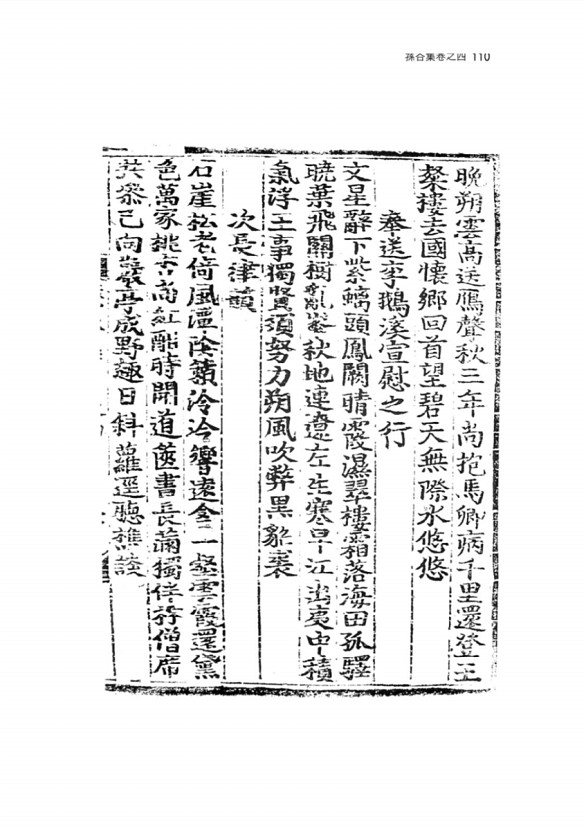 孫合集卷之四 110
晩朔雲高送鴈聲秋三年尚抱馬卿病千里還登王
粲樓去國懷鄉回首望碧天無際水悠悠
奉送李鵝溪宣慰之行
文星辭下紫螭頭鳳闕晴霞濕翠樓霜落海田孤驛
曉葉飛關樹亂蛩秋地連遼左生寒早江出夷中積
氣浮王事獨賢須努力朔風吹弊黑貂裘
次長津韻
石崖松老倚風潭陰籟泠泠響遠含一壑雲霞還黛
色萬家桃杏尚紅酣時開道篋書長獨伴僧席
共叅已向巖亭成野趣日斜蘿逕聽樵談